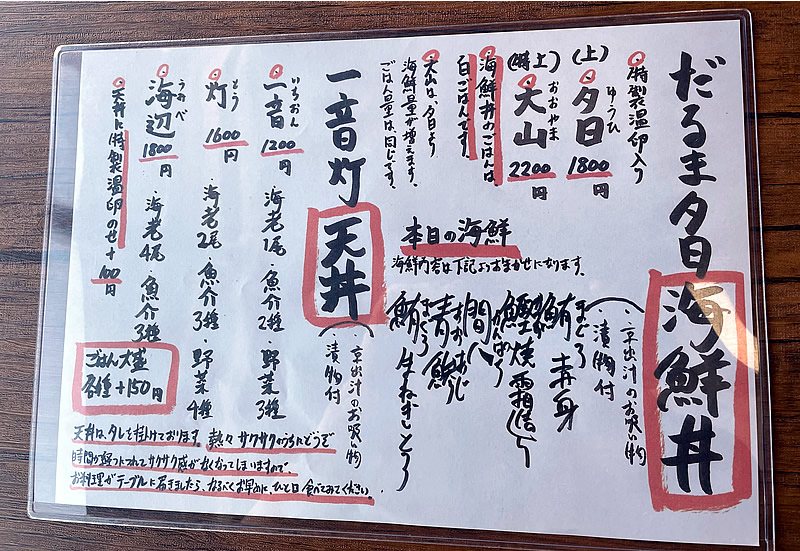 だるま夕日海鮮丼
・京出汁のお吸い物
漬物付
特製温卵入り
(上)夕日 ゆうひ 1800円
(特上)大山 おおやま 2200円
海鮮丼のごはんは、
白ごはんです。
大山は、夕日より
海鮮量が増えます。
ごはん量は同じです。
本日の海鮮
海鮮内容は下記よりおまかせになります。
まぐろ 鮪 赤身
鰹焼霜造り
かんぱち 間八
あおあじ 青鯵
まぐろ 鮪生ねぎとろ
一音灯 天丼
・京出汁のお吸い物
漬物付
一音 いちおん 1200円 ・海老1尾・魚介2種・野菜3種
灯 とう 1600円 ・海老2尾・魚介3種・野菜4種
海辺 うみべ 1800円 ・海老4尾・魚介3種
天丼に特製温卵のせ+100円
ごはん大盛
各種+150円
天丼は、タレを掛けております。熱々サクサクのうちにどうぞ
時間が経つにつれてサクサク感がなくなってしまいますので
お料理がテーブルに届きましたら、なるべくお早めに、ひと口食べてみてください。